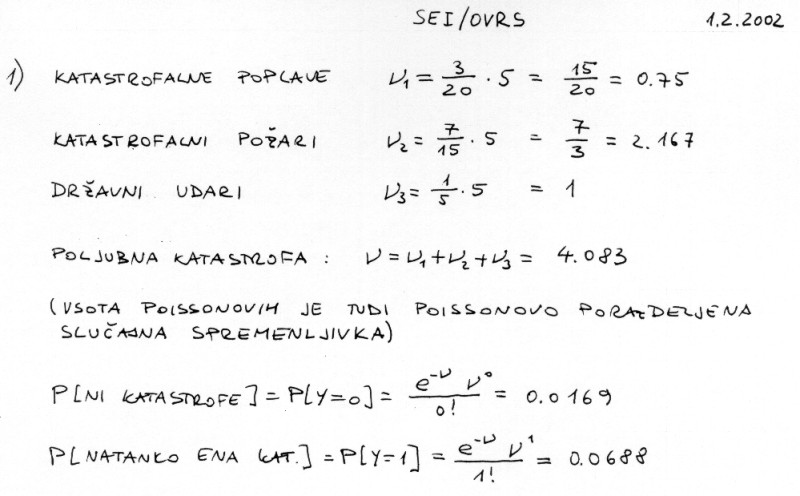 SEI/OVRS 1.2.2002
1) KATASTROFALNE POPLAVE ν₁ = 3/20 · 5 = 15/20 = 0.75
KATASTROFALNI POŽARI ν₂ = 7/15 · 5 = 7/3 = 2.167
DRŽAVNI UDARI ν₃ = 1/5 · 5 = 1
POLJUBNA KATASTROFA : ν = ν₁ + ν₂ + ν₃ = 4.083
(VSOTA POISSONOVIH JE TUDI POISSONOVO PORAZDELJENA
SLUČAJNA SPREMENLJIVKA)
P[NI KATASTROFE] = P[Y=0] = e^-ν ν^0 / 0! = 0.0169
P[NATANKO ENA KAT.] = P[Y=1] = e^-ν ν^1 / 1! = 0.0688